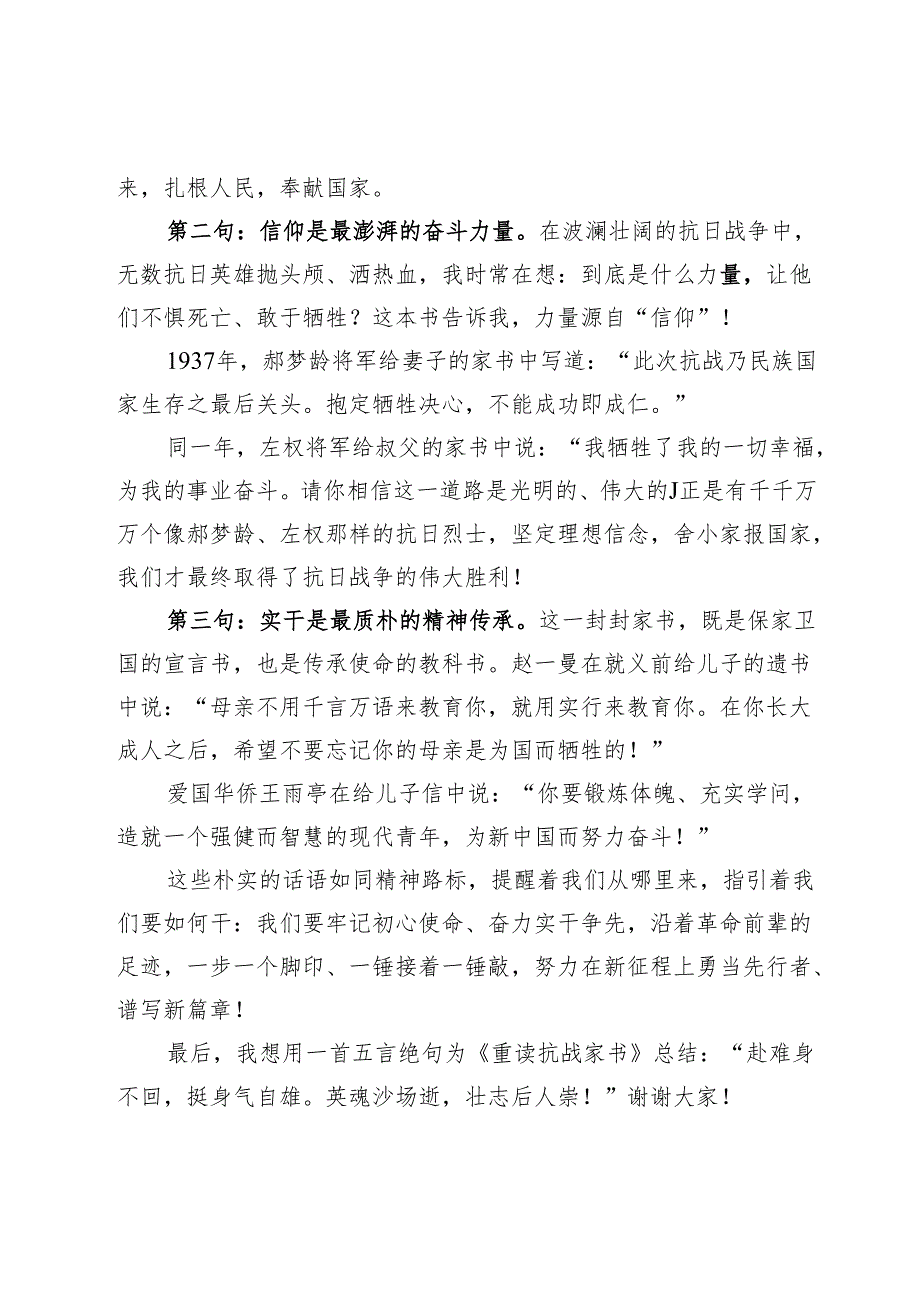 来，扎根人民，奉献国家。
第二句：信仰是最澎湃的奋斗力量。在波澜壮阔的抗日战争中，
无数抗日英雄抛头颅、洒热血，我时常在想：到底是什么力量，让他
们不惧死亡、敢于牺牲？这本书告诉我，力量源自“信仰”！
1937年，郝梦龄将军给妻子的家书中写道：“此次抗战乃民族国
家生存之最后关头。抱定牺牲决心，不能成功即成仁。”
同一年，左权将军给叔父的家书中说：“我牺牲了我的一切幸福，
为我的事业奋斗。请你相信这一道路是光明的、伟大的J正是有千千万
万个像郝梦龄、左权那样的抗日烈士，坚定理想信念，舍小家报国家，
我们才最终取得了抗日战争的伟大胜利！
第三句：实干是最质朴的精神传承。这一封封家书，既是保家卫
国的宣言书，也是传承使命的教科书。赵一曼在就义前给儿子的遗书
中说：“母亲不用千言万语来教育你，就用实行来教育你。在你长大
成人之后，希望不要忘记你的母亲是为国而牺牲的！”
爱国华侨王雨亭在给儿子信中说：“你要锻炼体魄、充实学问，
造就一个强健而智慧的现代青年，为新中国而努力奋斗！”
这些朴实的话语如同精神路标，提醒着我们从哪里来，指引着我
们要如何干：我们要牢记初心使命、奋力实干争先，沿着革命前辈的
足迹，一步一个脚印、一锤接着一锤敲，努力在新征程上勇当先行者、
谱写新篇章！
最后，我想用一首五言绝句为《重读抗战家书》总结：“赴难身
不回，挺身气自雄。英魂沙场逝，壮志后人崇！”谢谢大家！